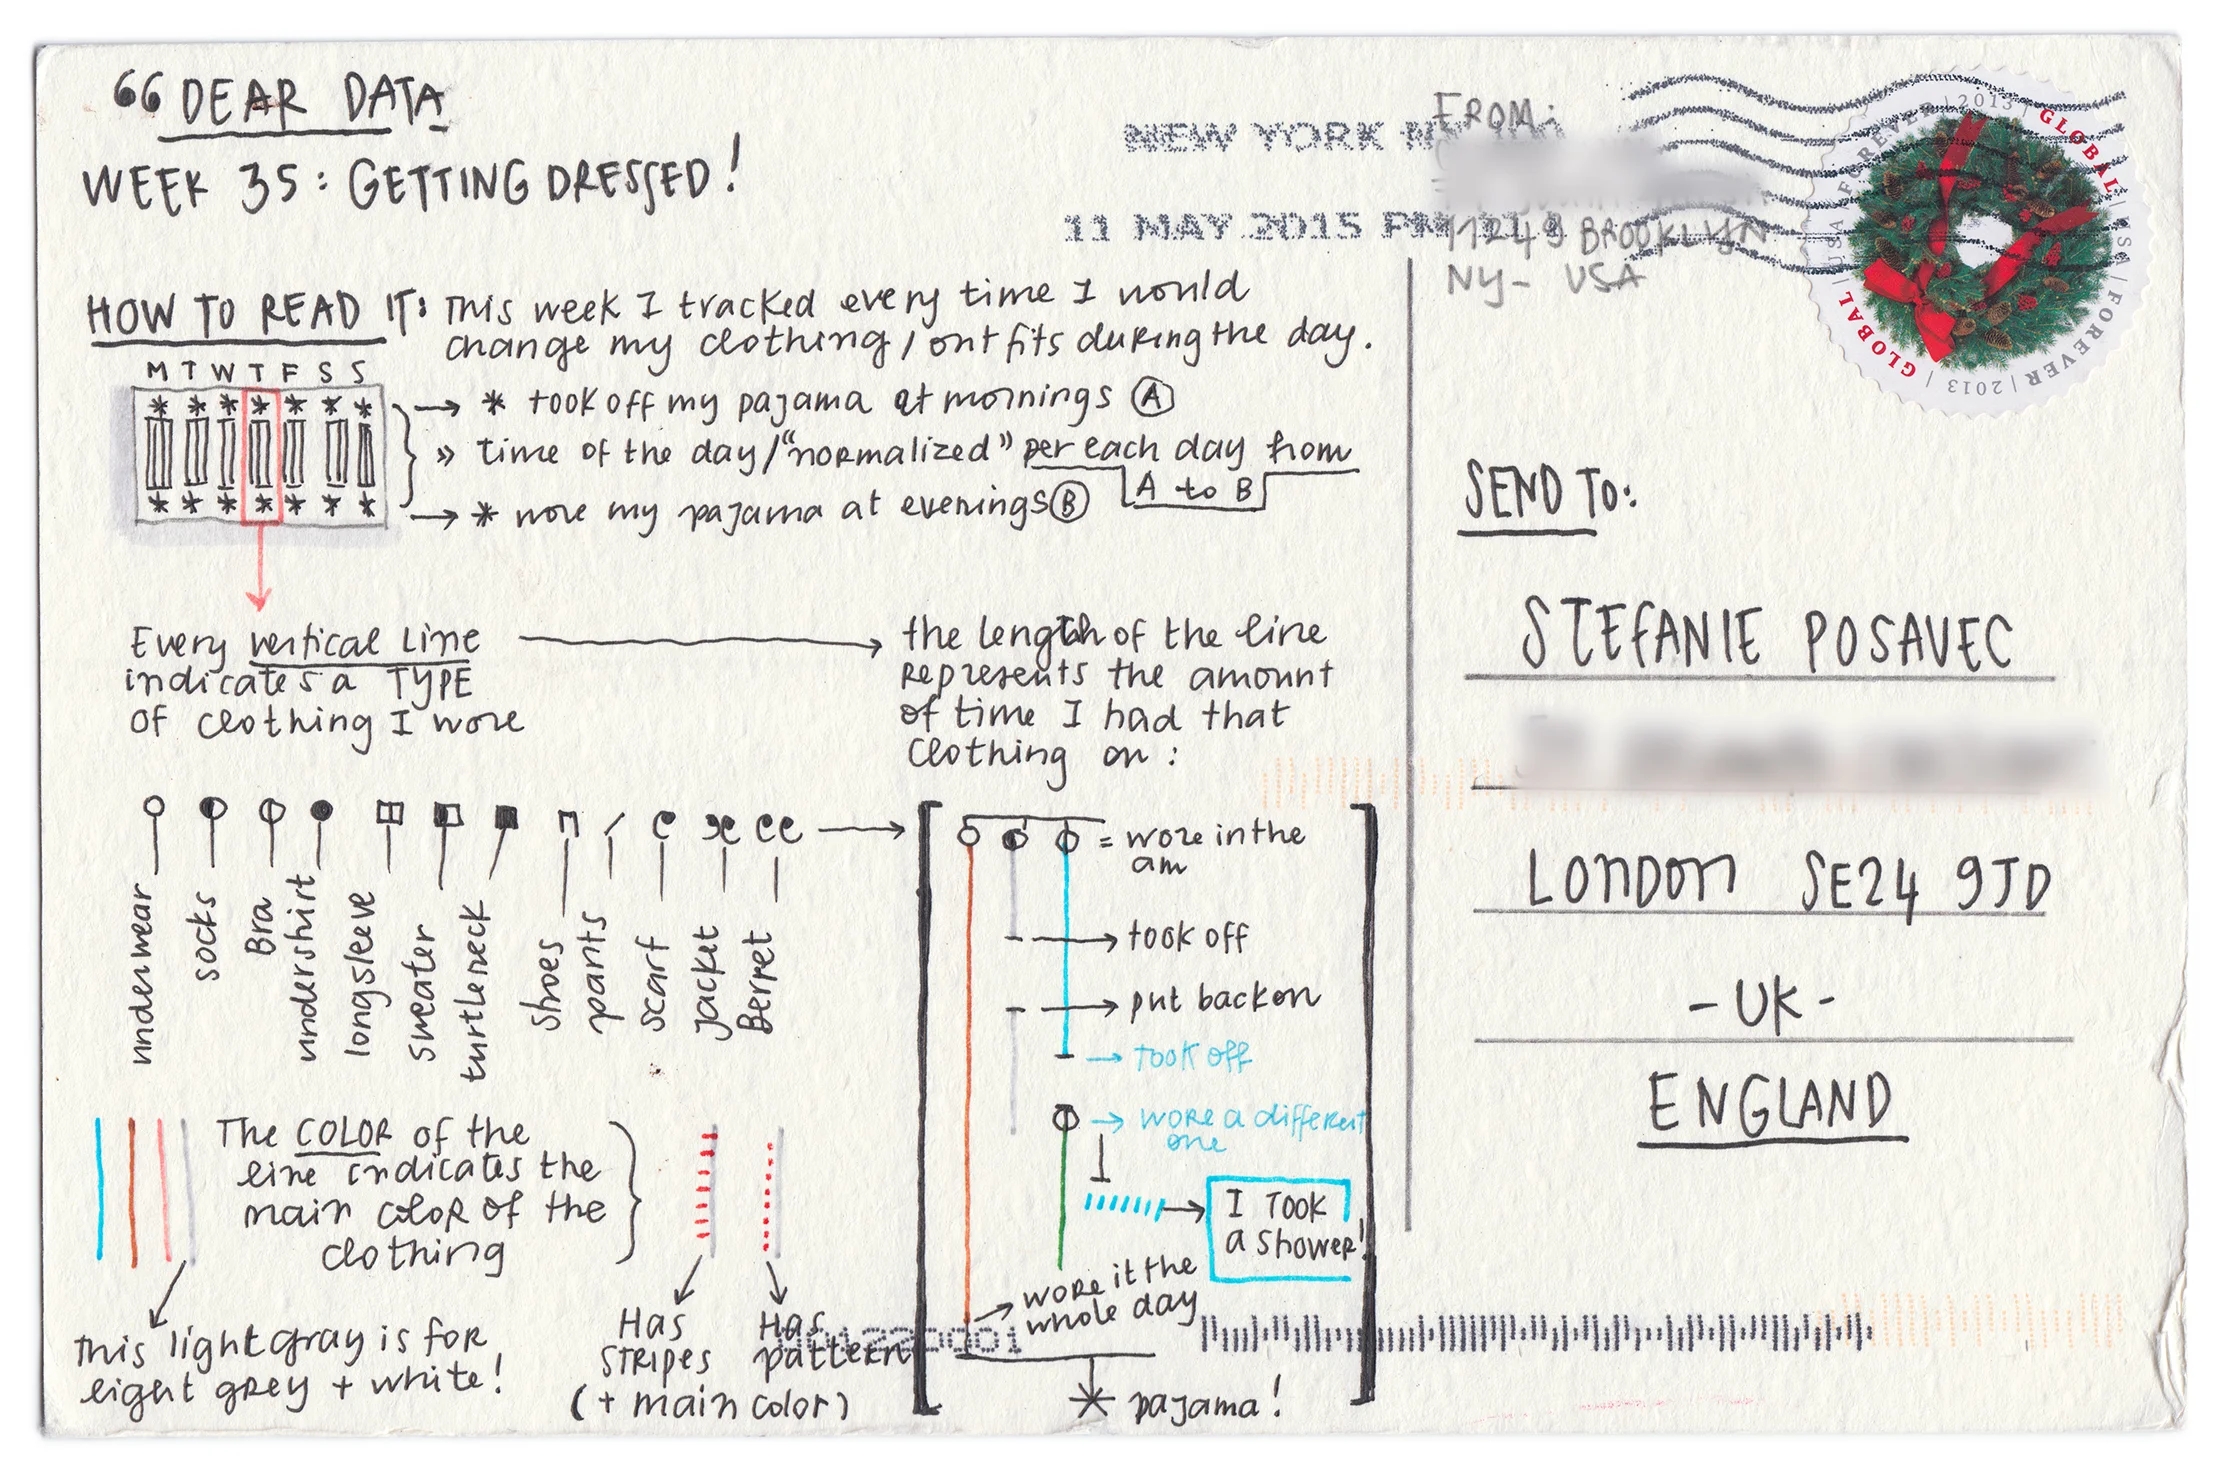 DEAR DATA
WEEK 35: GETTING DRESSED!
HOW TO READ IT: This week I tracked every time I would
change my clothing/outfits during the day.
M T W T F S S
→ * took off my pajama at mornings Ⓐ
» time of the day/"normalized" per each day from
A to B
→ * wore my pajama at evenings Ⓑ
Every vertical line
indicates a TYPE
of clothing I wore
the length of the line
represents the amount
of time I had that
clothing on:
underwear
socks
Bra
undershirt
longsleeve
sweater
turtleneck
shoes
pants
scarf
jacket
Berret
= wore in the
am
took off
put back on
took off
wore a different
one
I TOOK
a shower!
wore it the
whole day
* pajama!
The COLOR of the
line indicates the
main color of the
clothing
This light gray is for
light grey + white!
Has
STRIPES
Has
pattern
(+ main color)
NEW YORK NY
11 MAY 2015 PM
FROM:
11249 BROOKLYN
NY- USA
USA FOREVER | 2013 | GLOBAL | USA FOREVER | 2013 | GLOBAL |
SEND TO:
STEFANIE POSAVEC
LONDON SE24 9JD
- UK -
ENGLAND